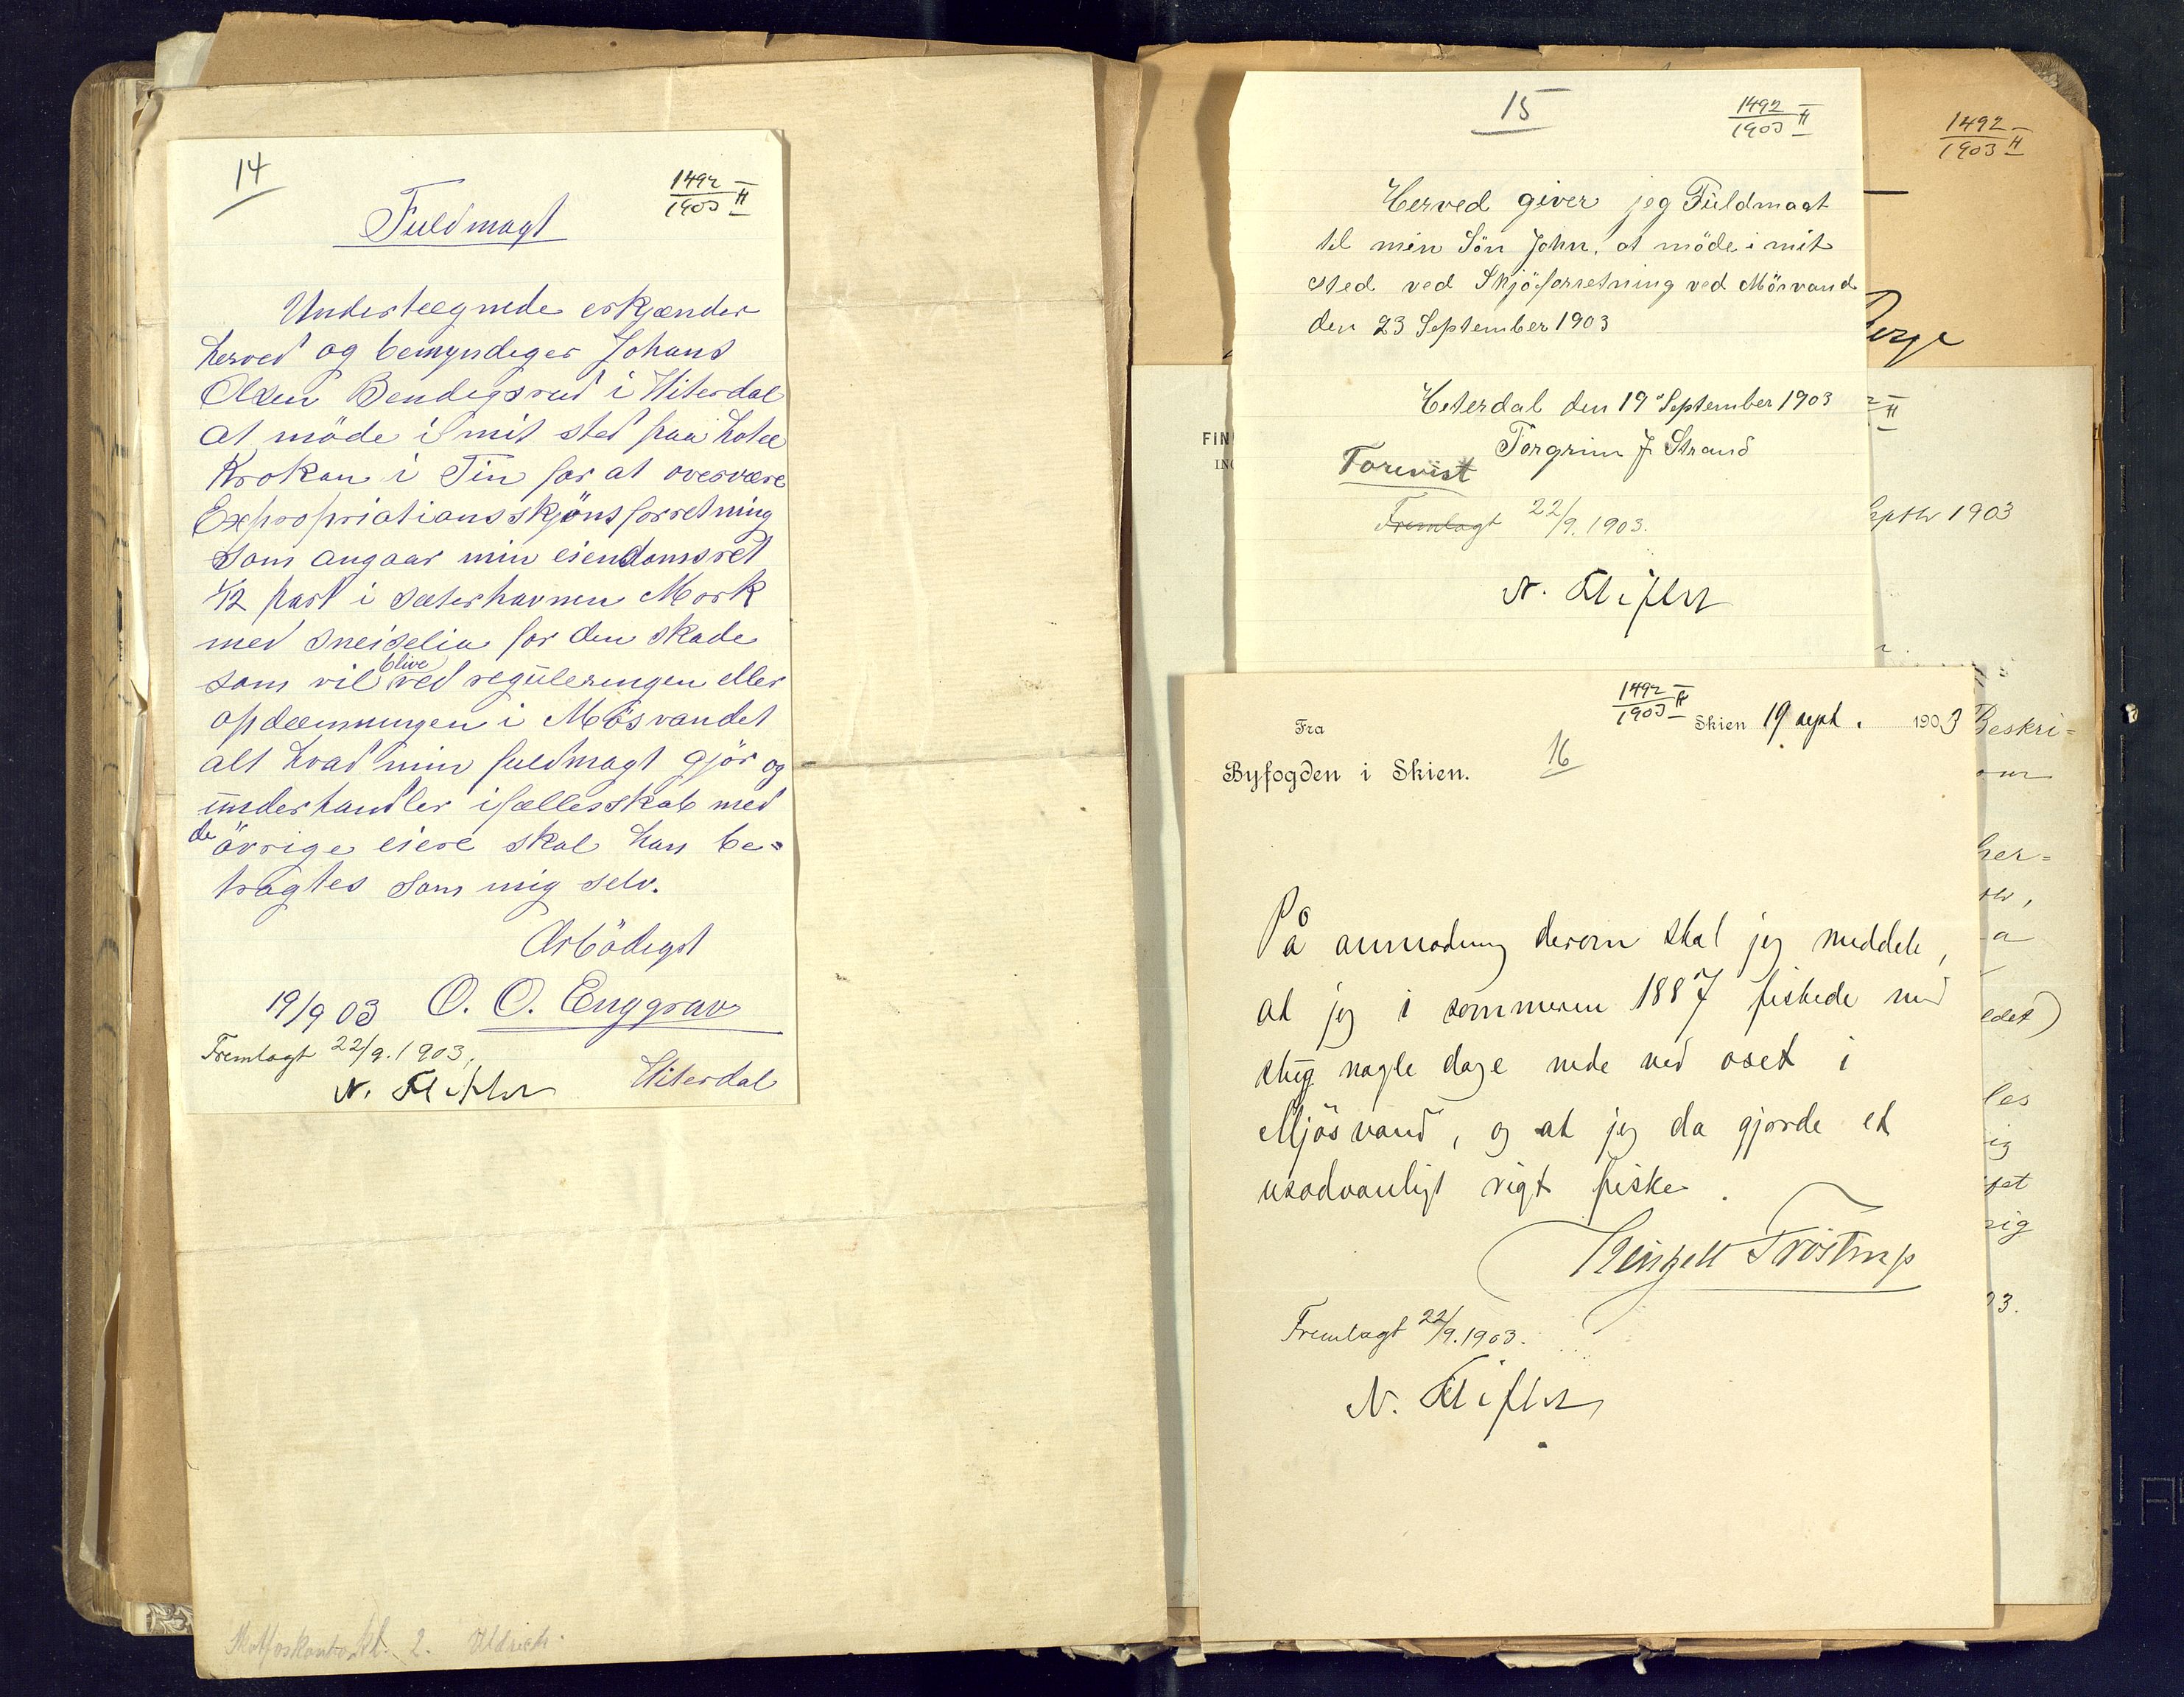 14
1492 II
1903
Fuldmagt
Undertegnede erkjænder
herved og bemyndiger Johans
Olsen Bendigsrud i Hiterdal
at möde i mit sted paa hotel
Krokan i Tin for at overvære
Expropriations skjöns forretning
som angaar min eiendomsret
1/12 part i sæterhavnen Mork
med Sneiselia for den skade
som vil blive ved reguleringen eller
opdæmningen i Mösvandet
alt hvad min fuldmagt gjör og
underhandler ifællesskab med
de övrige eiere skal han be=
tragtes som mig selv.
Ærbödigst
19/9 03 O. O. Enggrav
Hiterdal
Fremlagt 22/9. 1903.
N.
15
1492 II
1903
Herved giver jeg Fuldmagt
til min Sön John, at möde i mit
sted ved Skjöforretning ved Mösvand
den 23 September 1903
Heterdal den 19 September 1903
Torgrim J Strand
Forevist
Fremlagt 22/9. 1903.
N.
1492 II
1903
16
Fra
Byfogden i Skien.
Skien 19 sept. 1903
På anmodning derom skal jeg meddele,
at jeg i sommeren 1887 fiskede med
stug nogle dage nede ved oset i
Mjösvand, og at jeg da gjorde et
usadvanligt rigt fiske.
Tröstrup
Fremlagt 22/9. 1903.
N.
1492 II
1903
Berge
FIN
septbr 1903
Beskri=
om
her=
a
edet)
les
ig
rig
03.
2.